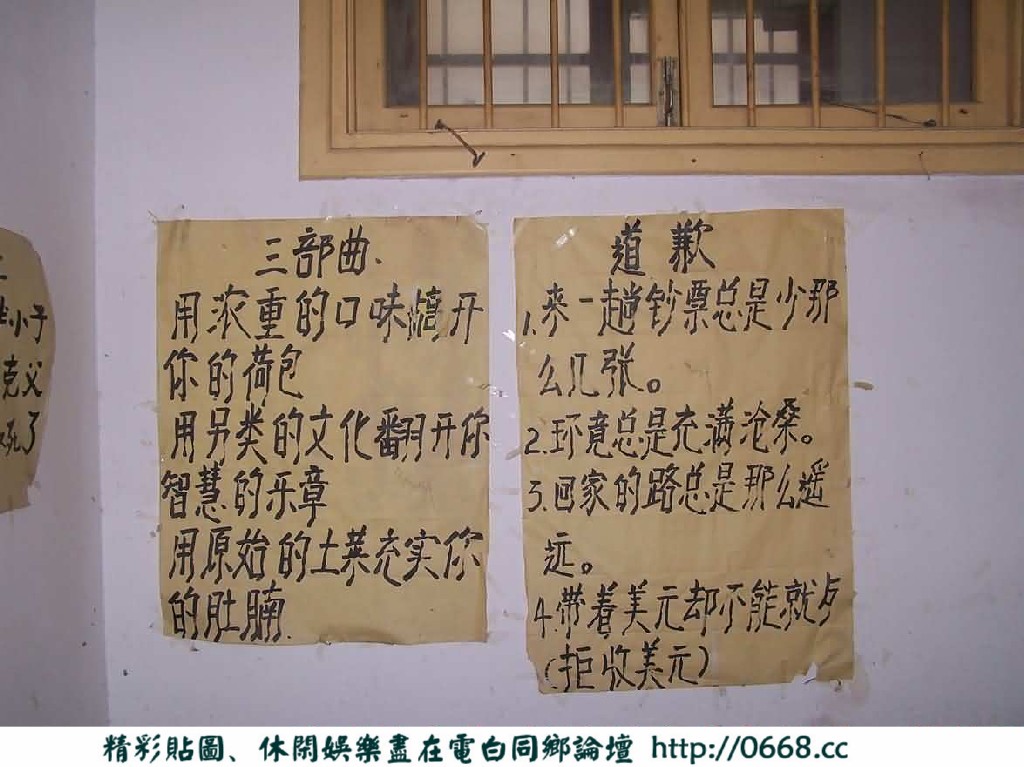 小子
克父
死了
三部曲.
用浓重的口味撬开
你的荷包
用另类的文化翻开你
智慧的乐章
用原始的土菜充实你
的肚腩.
道歉
1.来一趟钞票总是少那
么几张。
2.环境总是充满沧桑。
3.回家的路总是那么遥
远。
4.带着美元却不能就歺
(拒收美元)
精彩貼圖、休閑娛樂盡在電白同鄉論壇 http://0668.cc